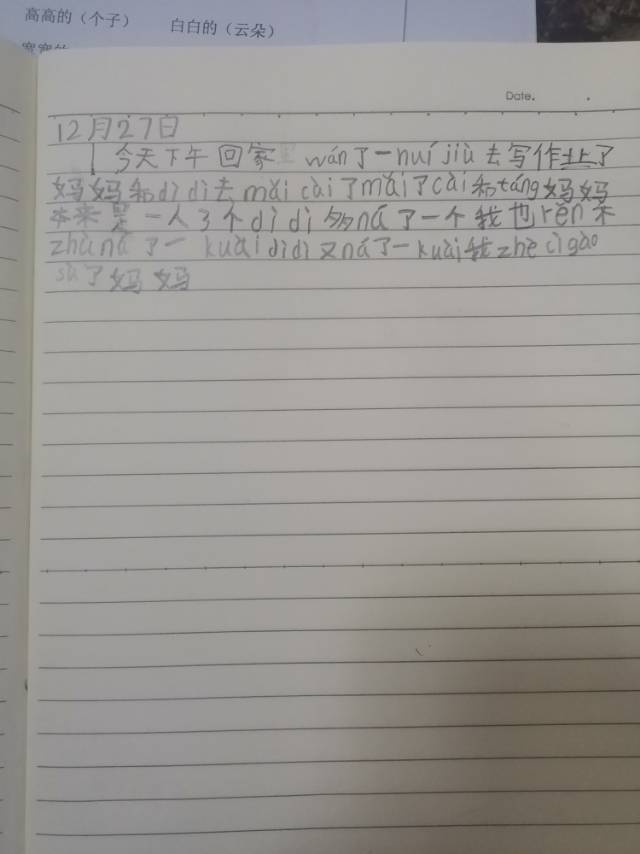 高高的（个子）
白白的（云朵）
Date.
12月27日
今天下午回家wán了一huíjiù去写作业了
妈妈和dìdì去mǎicài了mǎi了cài和táng妈妈
本来是一人3个dìdì多ná了一个我也rěn不
zhùná了一kuàidìdì又ná了一kuài我zhècìgào
sù了妈妈